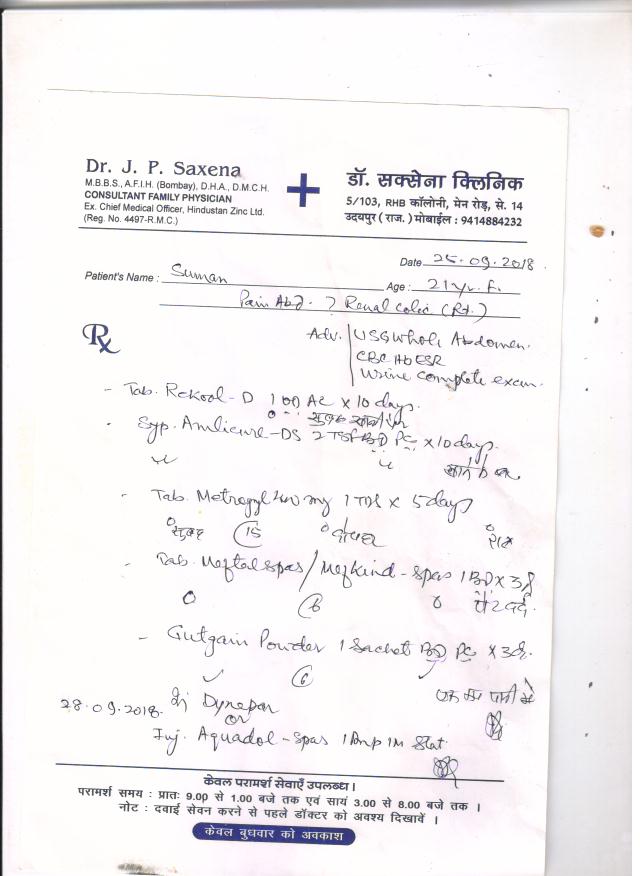 Dr. J. P. Saxena
M.B.B.S., A.F.I.H. (Bombay), D.H.A., D.M.C.H.
CONSULTANT FAMILY PHYSICIAN
Ex. Chief Medical Officer, Hindustan Zinc Ltd.
(Reg. No. 4497-R.M.C.)
डॉ. सक्सेना क्लिनिक
5/103, RHB कॉलोनी, मेन रोड़, से. 14
उदयपुर ( राज. ) मोबाईल : 9414884232
Date 25.09.2018
Patient's Name : Suman Age : 21 yr. F.
Pain Abd. ? Renal Colic (Rt.)
Rx
Adv. USG Whole Abdomen.
CBC Hb ESR
Urine complete exam.
- Tab. Rekool-D 1 OD AC x 10 days.
सुबह खाली पेट
- Syp. Amlicure-DS 2 TSF BD PC x 10 days.
- Tab. Metrogyl 400 mg 1 TDS x 5 days
सुबह 15 दोपहर रात
- Tab. Meftal spas / Mefkind-spas 1 BD x 3d
6 पेट दर्द.
- Gutgain Powder 1 Sachet BD PC x 3d.
6
28.09.2018. Inj Dynapar
or
Inj. Aquadol-Spas 1 Amp IM Stat
केवल परामर्श सेवाएँ उपलब्ध।
परामर्श समय : प्रातः 9.00 से 1.00 बजे तक एवं सायं 3.00 से 8.00 बजे तक ।
नोट : दवाई सेवन करने से पहले डॉक्टर को अवश्य दिखावें ।
केवल बुधवार को अवकाश